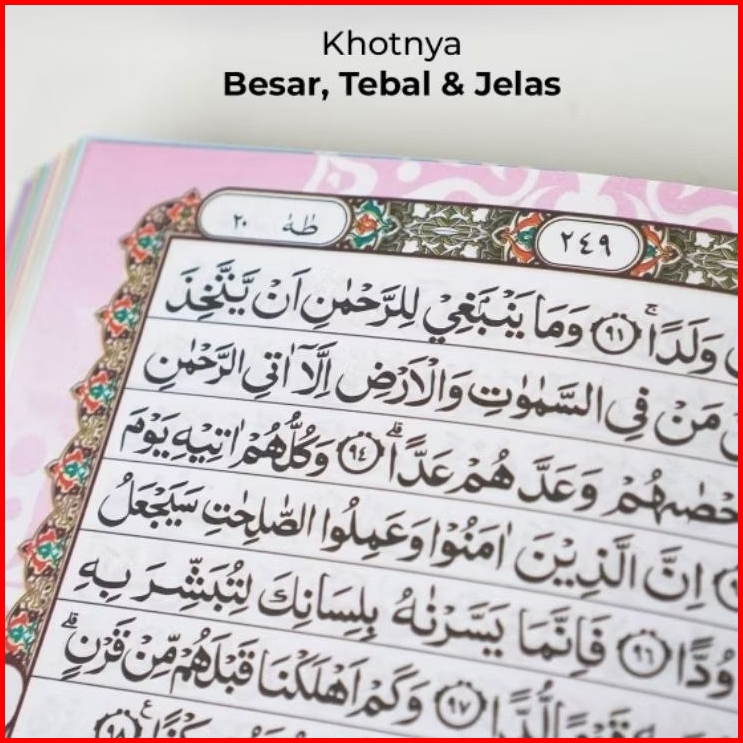 Khotnya
Besar, Tebal & Jelas
٢٤٩ طٰهٰ ٢٠
وَلَدًاۚ ٩١ وَمَا يَنْۢبَغِيْ لِلرَّحْمٰنِ اَنْ يَّتَّخِذَ
مَنْ فِى السَّمٰوٰتِ وَالْاَرْضِ اِلَّآ اٰتِى الرَّحْمٰنِ
حْصٰىهُمْ وَعَدَّهُمْ عَدًّاۗ ٩٤ وَكُلُّهُمْ اٰتِيْهِ يَوْمَ
اِنَّ الَّذِيْنَ اٰمَنُوْا وَعَمِلُوا الصّٰلِحٰتِ سَيَجْعَلُ
وُدًّا ٩٦ فَاِنَّمَا يَسَّرْنٰهُ بِلِسَانِكَ لِتُبَشِّرَ بِهِ
قَوْمًا لُّدًّا ٩٧ وَكَمْ اَهْلَكْنَا قَبْلَهُمْ مِّنْ قَرْنٍۗ
٩٨